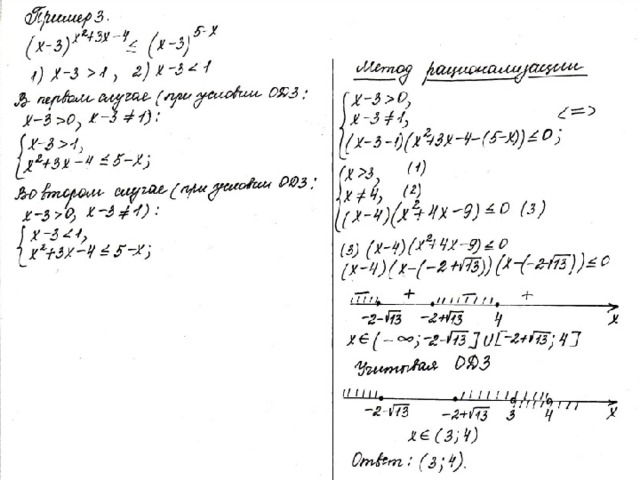 Пример 3.
(x-3)^(x²+3x-4) ≤ (x-3)^(5-x)
1) x-3>1, 2) x-3<1
В первом случае (при условии ОДЗ:
x-3>0, x-3≠1):
{ x-3>1,
x²+3x-4≤5-x;
Во втором случае (при условии ОДЗ:
x-3>0, x-3≠1):
{ x-3<1,
x²+3x-4≤5-x;
Метод рационализации
{ x-3>0,
x-3≠1, <=>
(x-3-1)(x²+3x-4-(5-x))≤0;
{ x>3, (1)
x≠4, (2)
(x-4)(x²+4x-9)≤0 (3)
(3) (x-4)(x²+4x-9)≤0
(x-4)(x-(-2+√13))(x-(-2-√13))≤0
− + − +
-2-√13 -2+√13 4 x
x∈(-∞;-2-√13]∪[-2+√13;4]
Учитывая ОДЗ
-2-√13 -2+√13 3 4 x
x∈(3;4)
Ответ: (3;4).